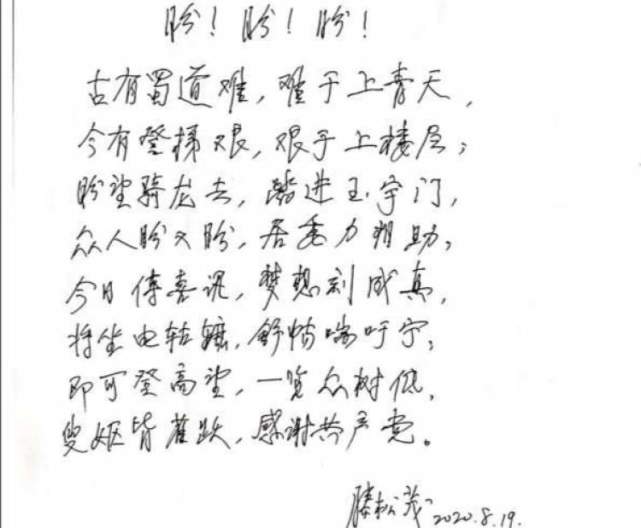 盼！盼！盼！
古有蜀道难，难于上青天，
今有登梯艰，艰于上楼层；
盼望骑龙去，踏进玉宇门，
众人盼又盼，居委力相助；
今日传喜讯，梦想刻成真，
将坐电轱辘，舒怖喘吁宁；
即可登高望，一览众树低，
叟妪皆雀跃，感谢共产党。
滕松茂 2020.8.19.